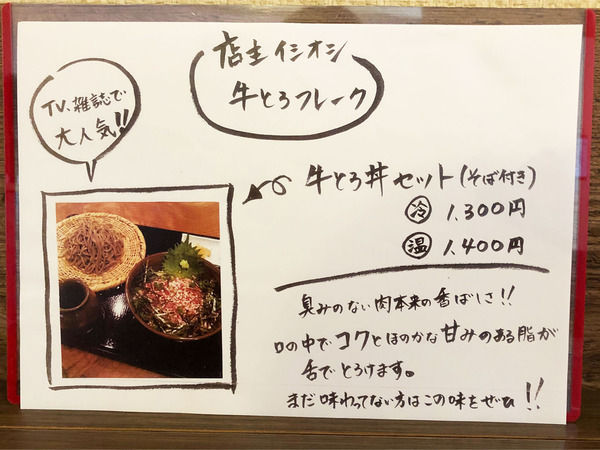 店主イシオシ
牛とろフレーク
TV、雑誌で
大人気!!
牛とろ丼セット(そば付き)
冷 1.300円
温 1.400円
臭みのない肉本来の香ばしさ!!
口の中でコクとほのかな甘みのある脂が
舌でとろけます。
まだ味わってない方はこの味をぜひ!!